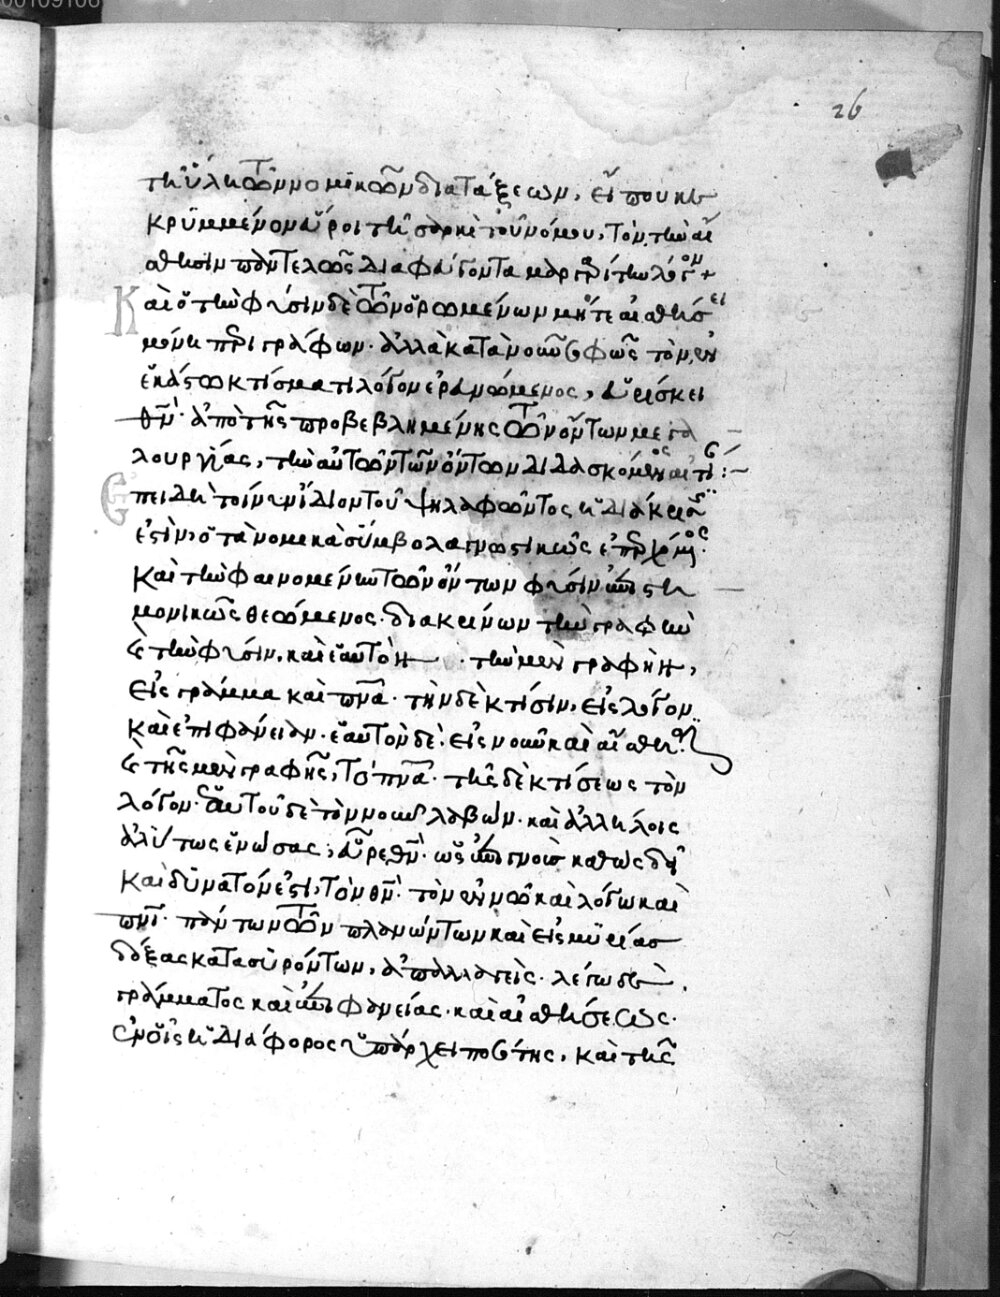 00109108
26
τῆ ὕλη τῶν νομικῶν διατάξεων, εἴ που κε
κρυμμένον εὕροι τῆ σαρκὶ τοῦ νόμου, τὸν τὴν αἴ
σθησιν παντελῶς διαφεύγοντα μαργαρίτην λόγον +
Καὶ ὁ τὴν φύσιν δὲ τῶν ὁρωμένων μήτε αἰσθήσει
μόνη περιγράφων· ἀλλὰ κατὰ νοῦν σοφῶς τὸν ἐν
ἑκάστω κτίσματι λόγον ἐρευνώμενος, εὑρίσκει
θν· ἀπὸ τῆς προβεβλημένης τῶν ὄντων μεγα
λουργίας, τὴν αὐτῶν τῶν ὄντων διδασκόμενος αἰτίαν :~
Ἐπειδὴ τοίνυν ἴδιον τοῦ ψηλαφῶντος ἡ διάκρισις
ἐστὶν, ὁ τὰ νομικὰ σύμβολα γνωστικῶς ἐπερχόμενος·
Καὶ τὴν φαινομένην τῶν ὄντων φύσιν ἐπιστη
μονικῶς θεώμενος· διακρίνων τὴν γραφὴν
καὶ τὴν φύσιν, καὶ ἑαυτόν· τὴν μὲν γραφὴν,
εἰς γράμμα καὶ πνα· τὴν δὲ κτίσιν, εἰς λόγον
καὶ ἐπιφάνειαν· ἑαυτὸν δὲ, εἰς νοῦν καὶ αἴσθησιν
καὶ τῆς μὲν γραφῆς, τὸ πνα· τῆς δὲ κτίσεως τὸν
λόγον· ἑαυτοῦ δὲ τὸν νοῦν λαβών· καὶ ἀλλήλοις
ἀλύτως ἑνώσας, εὗρε θν· ὡς ἐπιγνοὺς καθὼς δεῖ
καὶ δυνατόν ἐστι, τὸν θν· τὸν ἐν νῶ καὶ λόγω καὶ
πνι· πάντων τῶν πλανώντων καὶ εἰς μυρίας
δόξας κατασυρόντων, ἀπαλλαγεὶς· λέγω δὲ,
γράμματος καὶ ἐπιφανείας· καὶ αἰσθήσεως·
ἐν οἷς ἡ διάφορος ὑπάρχει ποσότης, καὶ τῆς